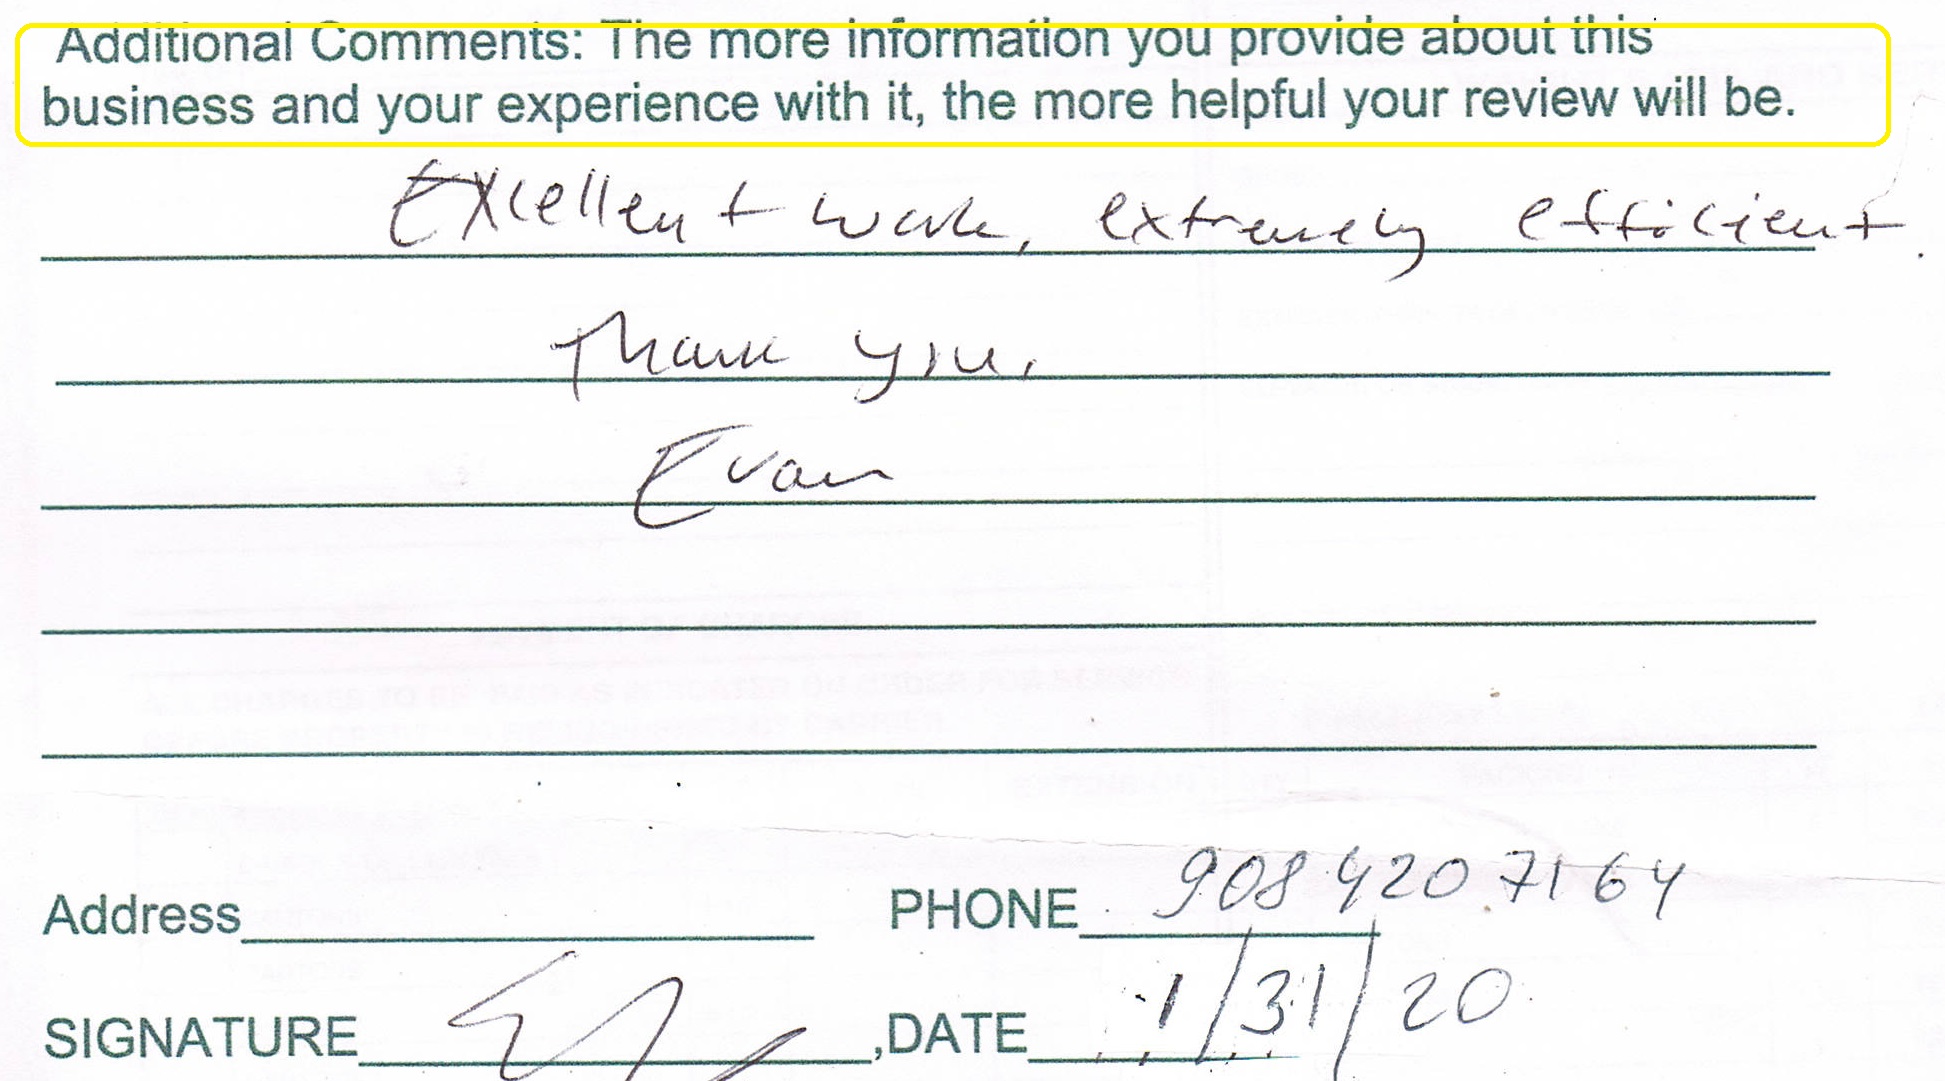 Additional Comments: The more information you provide about this
business and your experience with it, the more helpful your review will be.
Excellent work, extremely efficient.
Thank you.
Evan
Address PHONE 908 420 7164
SIGNATURE ,DATE 1/31/20